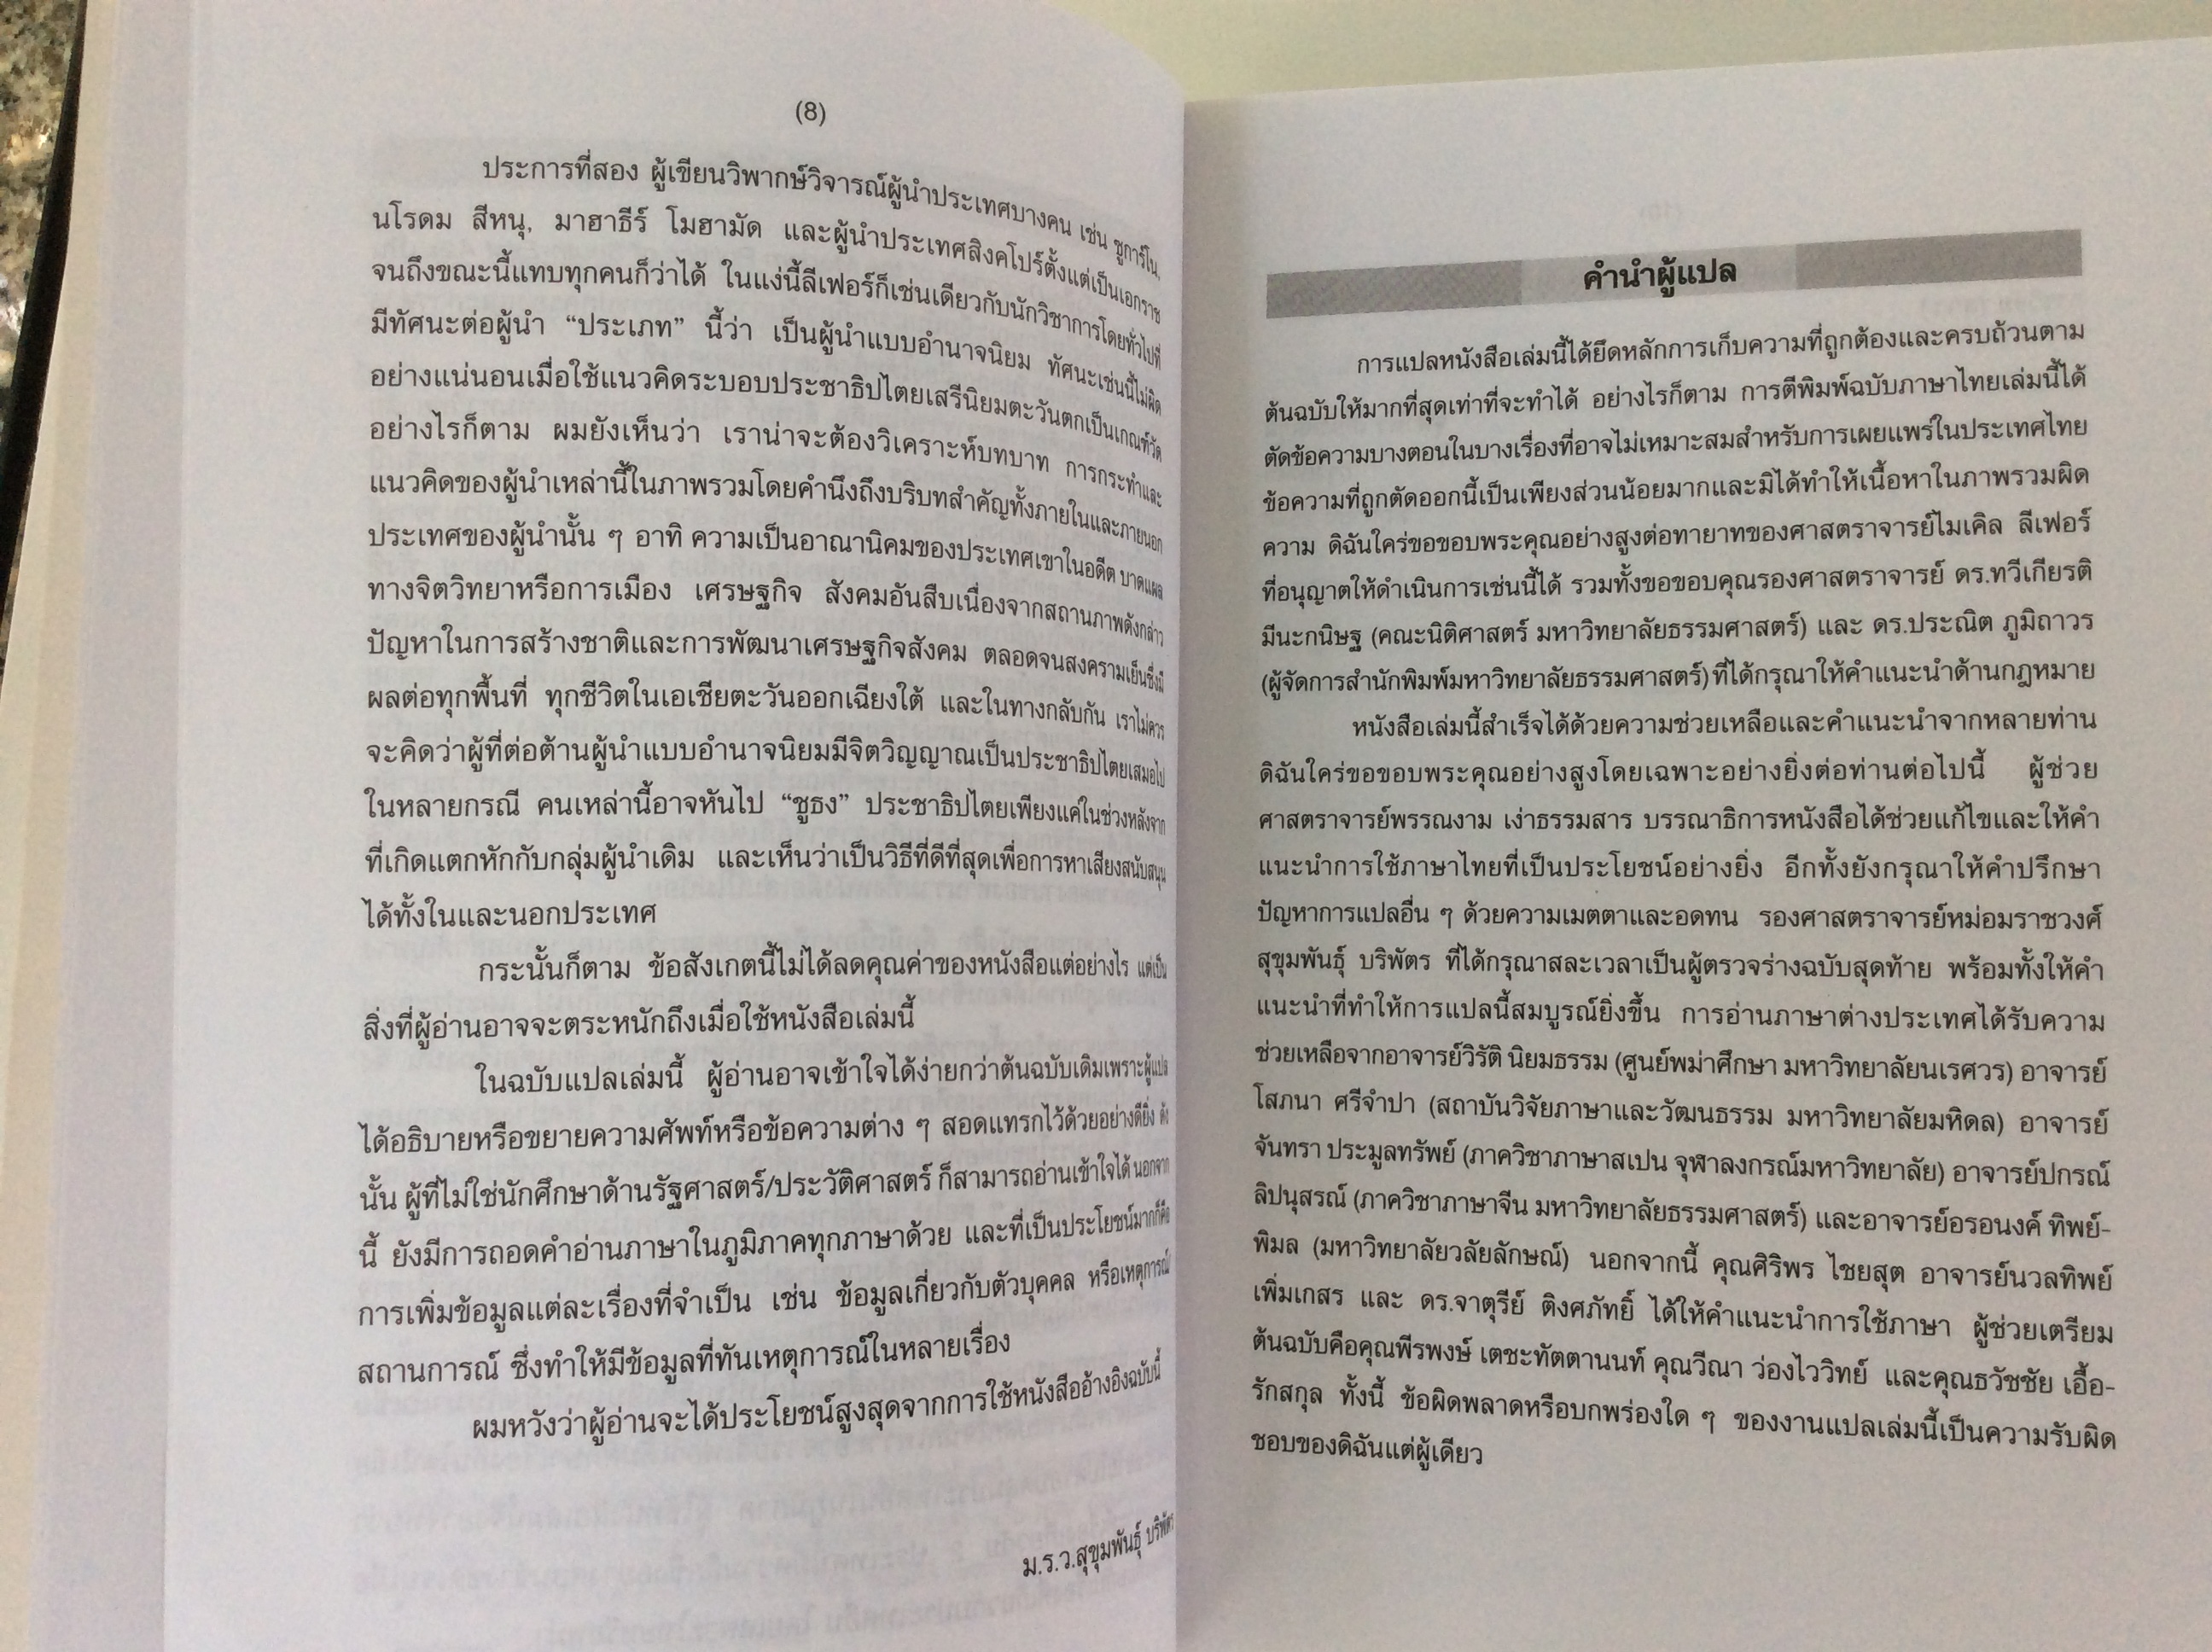 (8)
ประการที่สอง ผู้เขียนวิพากษ์วิจารณ์ผู้นำประเทศบางคน เช่น ซูการ์โน,
นโรดม สีหนุ, มาฮาธีร์ โมฮามัด และผู้นำประเทศสิงคโปร์ตั้งแต่เป็นเอกราช
จนถึงขณะนี้แทบทุกคนก็ว่าได้ ในแง่นี้ลีเฟอร์ก็เช่นเดียวกับนักวิชาการโดยทั่วไปที่
มีทัศนะต่อผู้นำ “ประเภท” นี้ว่า เป็นผู้นำแบบอำนาจนิยม ทัศนะเช่นนี้ไม่ผิด
อย่างแน่นอนเมื่อใช้แนวคิดระบอบประชาธิปไตยเสรีนิยมตะวันตกเป็นเกณฑ์วัด
อย่างไรก็ตาม ผมยังเห็นว่า เราน่าจะต้องวิเคราะห์บทบาท การกระทำและ
แนวคิดของผู้นำเหล่านี้ในภาพรวมโดยคำนึงถึงบริบทสำคัญทั้งภายในและภายนอก
ประเทศของผู้นำนั้น ๆ อาทิ ความเป็นอาณานิคมของประเทศเขาในอดีต บาดแผล
ทางจิตวิทยาหรือการเมือง เศรษฐกิจ สังคมอันสืบเนื่องจากสถานภาพดังกล่าว
ปัญหาในการสร้างชาติและการพัฒนาเศรษฐกิจสังคม ตลอดจนสงครามเย็นซึ่งมี
ผลต่อทุกพื้นที่ ทุกชีวิตในเอเชียตะวันออกเฉียงใต้ และในทางกลับกัน เราไม่ควร
จะคิดว่าผู้ที่ต่อต้านผู้นำแบบอำนาจนิยมมีจิตวิญญาณเป็นประชาธิปไตยเสมอไป
ในหลายกรณี คนเหล่านี้อาจหันไป “ชูธง” ประชาธิปไตยเพียงแค่ในช่วงหลังจาก
ที่เกิดแตกหักกับกลุ่มผู้นำเดิม และเห็นว่าเป็นวิธีที่ดีที่สุดเพื่อการหาเสียงสนับสนุน
ได้ทั้งในและนอกประเทศ
กระนั้นก็ตาม ข้อสังเกตนี้ไม่ได้ลดคุณค่าของหนังสือแต่อย่างไร แต่เป็น
สิ่งที่ผู้อ่านอาจจะตระหนักถึงเมื่อใช้หนังสือเล่มนี้
ในฉบับแปลเล่มนี้ ผู้อ่านอาจเข้าใจได้ง่ายกว่าต้นฉบับเดิมเพราะผู้แปล
ได้อธิบายหรือขยายความศัพท์หรือข้อความต่าง ๆ สอดแทรกไว้ด้วยอย่างดียิ่ง ดัง
นั้น ผู้ที่ไม่ใช่นักศึกษาด้านรัฐศาสตร์/ประวัติศาสตร์ ก็สามารถอ่านเข้าใจได้ นอกจาก
นี้ ยังมีการถอดคำอ่านภาษาในภูมิภาคทุกภาษาด้วย และที่เป็นประโยชน์มากก็คือ
การเพิ่มข้อมูลแต่ละเรื่องที่จำเป็น เช่น ข้อมูลเกี่ยวกับตัวบุคคล หรือเหตุการณ์
สถานการณ์ ซึ่งทำให้มีข้อมูลที่ทันเหตุการณ์ในหลายเรื่อง
ผมหวังว่าผู้อ่านจะได้ประโยชน์สูงสุดจากการใช้หนังสืออ้างอิงฉบับนี้
ม.ร.ว.สุขุมพันธุ์ บริพัตร
คำนำผู้แปล
การแปลหนังสือเล่มนี้ได้ยึดหลักการเก็บความที่ถูกต้องและครบถ้วนตาม
ต้นฉบับให้มากที่สุดเท่าที่จะทำได้ อย่างไรก็ตาม การตีพิมพ์ฉบับภาษาไทยเล่มนี้ได้
ตัดข้อความบางตอนในบางเรื่องที่อาจไม่เหมาะสมสำหรับการเผยแพร่ในประเทศไทย
ข้อความที่ถูกตัดออกนี้เป็นเพียงส่วนน้อยมากและมิได้ทำให้เนื้อหาในภาพรวมผิด
ความ ดิฉันใคร่ขอขอบพระคุณอย่างสูงต่อทายาทของศาสตราจารย์ไมเคิล ลีเฟอร์
ที่อนุญาตให้ดำเนินการเช่นนี้ได้ รวมทั้งขอขอบคุณรองศาสตราจารย์ ดร.ทวีเกียรติ
มีนะกนิษฐ (คณะนิติศาสตร์ มหาวิทยาลัยธรรมศาสตร์) และ ดร.ประณิต ภูมิถาวร
(ผู้จัดการสำนักพิมพ์มหาวิทยาลัยธรรมศาสตร์) ที่ได้กรุณาให้คำแนะนำด้านกฎหมาย
หนังสือเล่มนี้สำเร็จได้ด้วยความช่วยเหลือและคำแนะนำจากหลายท่าน
ดิฉันใคร่ขอขอบพระคุณอย่างสูงโดยเฉพาะอย่างยิ่งต่อท่านต่อไปนี้ ผู้ช่วย
ศาสตราจารย์พรรณงาม เง่าธรรมสาร บรรณาธิการหนังสือได้ช่วยแก้ไขและให้คำ
แนะนำการใช้ภาษาไทยที่เป็นประโยชน์อย่างยิ่ง อีกทั้งยังกรุณาให้คำปรึกษา
ปัญหาการแปลอื่น ๆ ด้วยความเมตตาและอดทน รองศาสตราจารย์หม่อมราชวงศ์
สุขุมพันธุ์ บริพัตร ที่ได้กรุณาสละเวลาเป็นผู้ตรวจร่างฉบับสุดท้าย พร้อมทั้งให้คำ
แนะนำที่ทำให้การแปลนี้สมบูรณ์ยิ่งขึ้น การอ่านภาษาต่างประเทศได้รับความ
ช่วยเหลือจากอาจารย์วิรัติ นิยมธรรม (ศูนย์พม่าศึกษา มหาวิทยาลัยนเรศวร) อาจารย์
โสภนา ศรีจำปา (สถาบันวิจัยภาษาและวัฒนธรรม มหาวิทยาลัยมหิดล) อาจารย์
จันทรา ประมูลทรัพย์ (ภาควิชาภาษาสเปน จุฬาลงกรณ์มหาวิทยาลัย) อาจารย์ปกรณ์
ลิปนุสรณ์ (ภาควิชาภาษาจีน มหาวิทยาลัยธรรมศาสตร์) และอาจารย์อรอนงค์ ทิพย์-
พิมล (มหาวิทยาลัยวลัยลักษณ์) นอกจากนี้ คุณศิริพร ไชยสุต อาจารย์นวลทิพย์
เพิ่มเกสร และ ดร.จาตุรีย์ ติงศภัทยิ์ ได้ให้คำแนะนำการใช้ภาษา ผู้ช่วยเตรียม
ต้นฉบับคือคุณพีรพงษ์ เตชะทัตตานนท์ คุณวีณา ว่องไววิทย์ และคุณธวัชชัย เอื้อ-
รักสกุล ทั้งนี้ ข้อผิดพลาดหรือบกพร่องใด ๆ ของงานแปลเล่มนี้เป็นความรับผิด
ชอบของดิฉันแต่ผู้เดียว